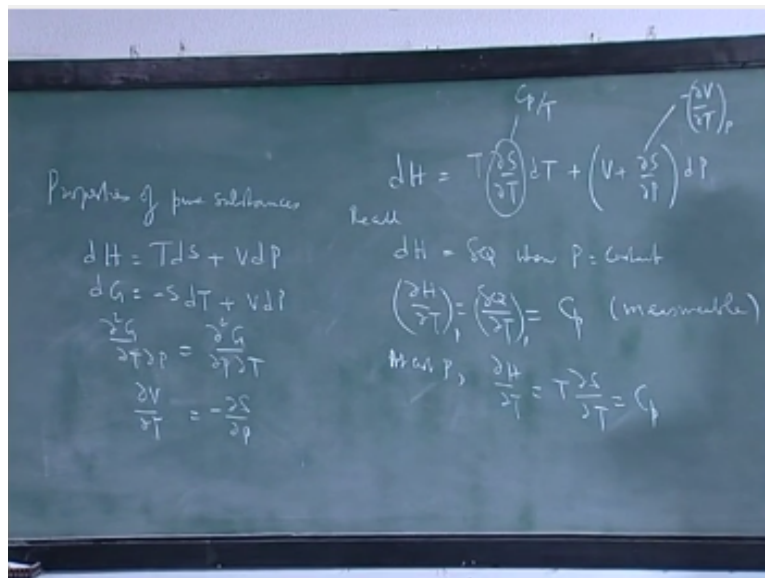 Properties of pure substances
dH = TdS + VdP
dG = -SdT + VdP
∂²G/∂T∂P = ∂²G/∂P∂T
∂V/∂T = -∂S/∂P
Cp/T
-(∂V/∂T)P
dH = T(∂S/∂T)dT + (V + ∂S/∂P)dP
Recall
dH = δQ when P = Constant
(∂H/∂T)P = (δQ/∂T)P = Cp (measureable)
At const P, ∂H/∂T = T∂S/∂T = Cp